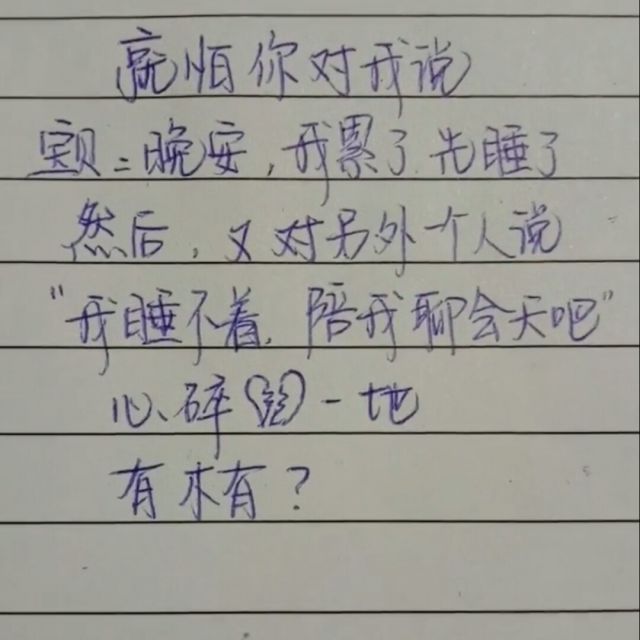 就怕你对我说
宝贝:晚安,我累了.先睡了
然后,又对另外个人说
“我睡不着.陪我聊会天吧”
心碎一地
有木有?